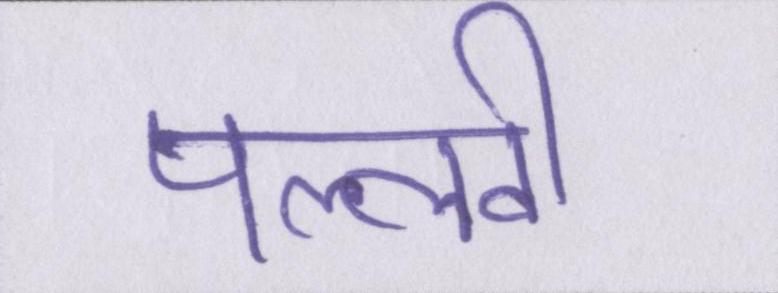 पल्लवी